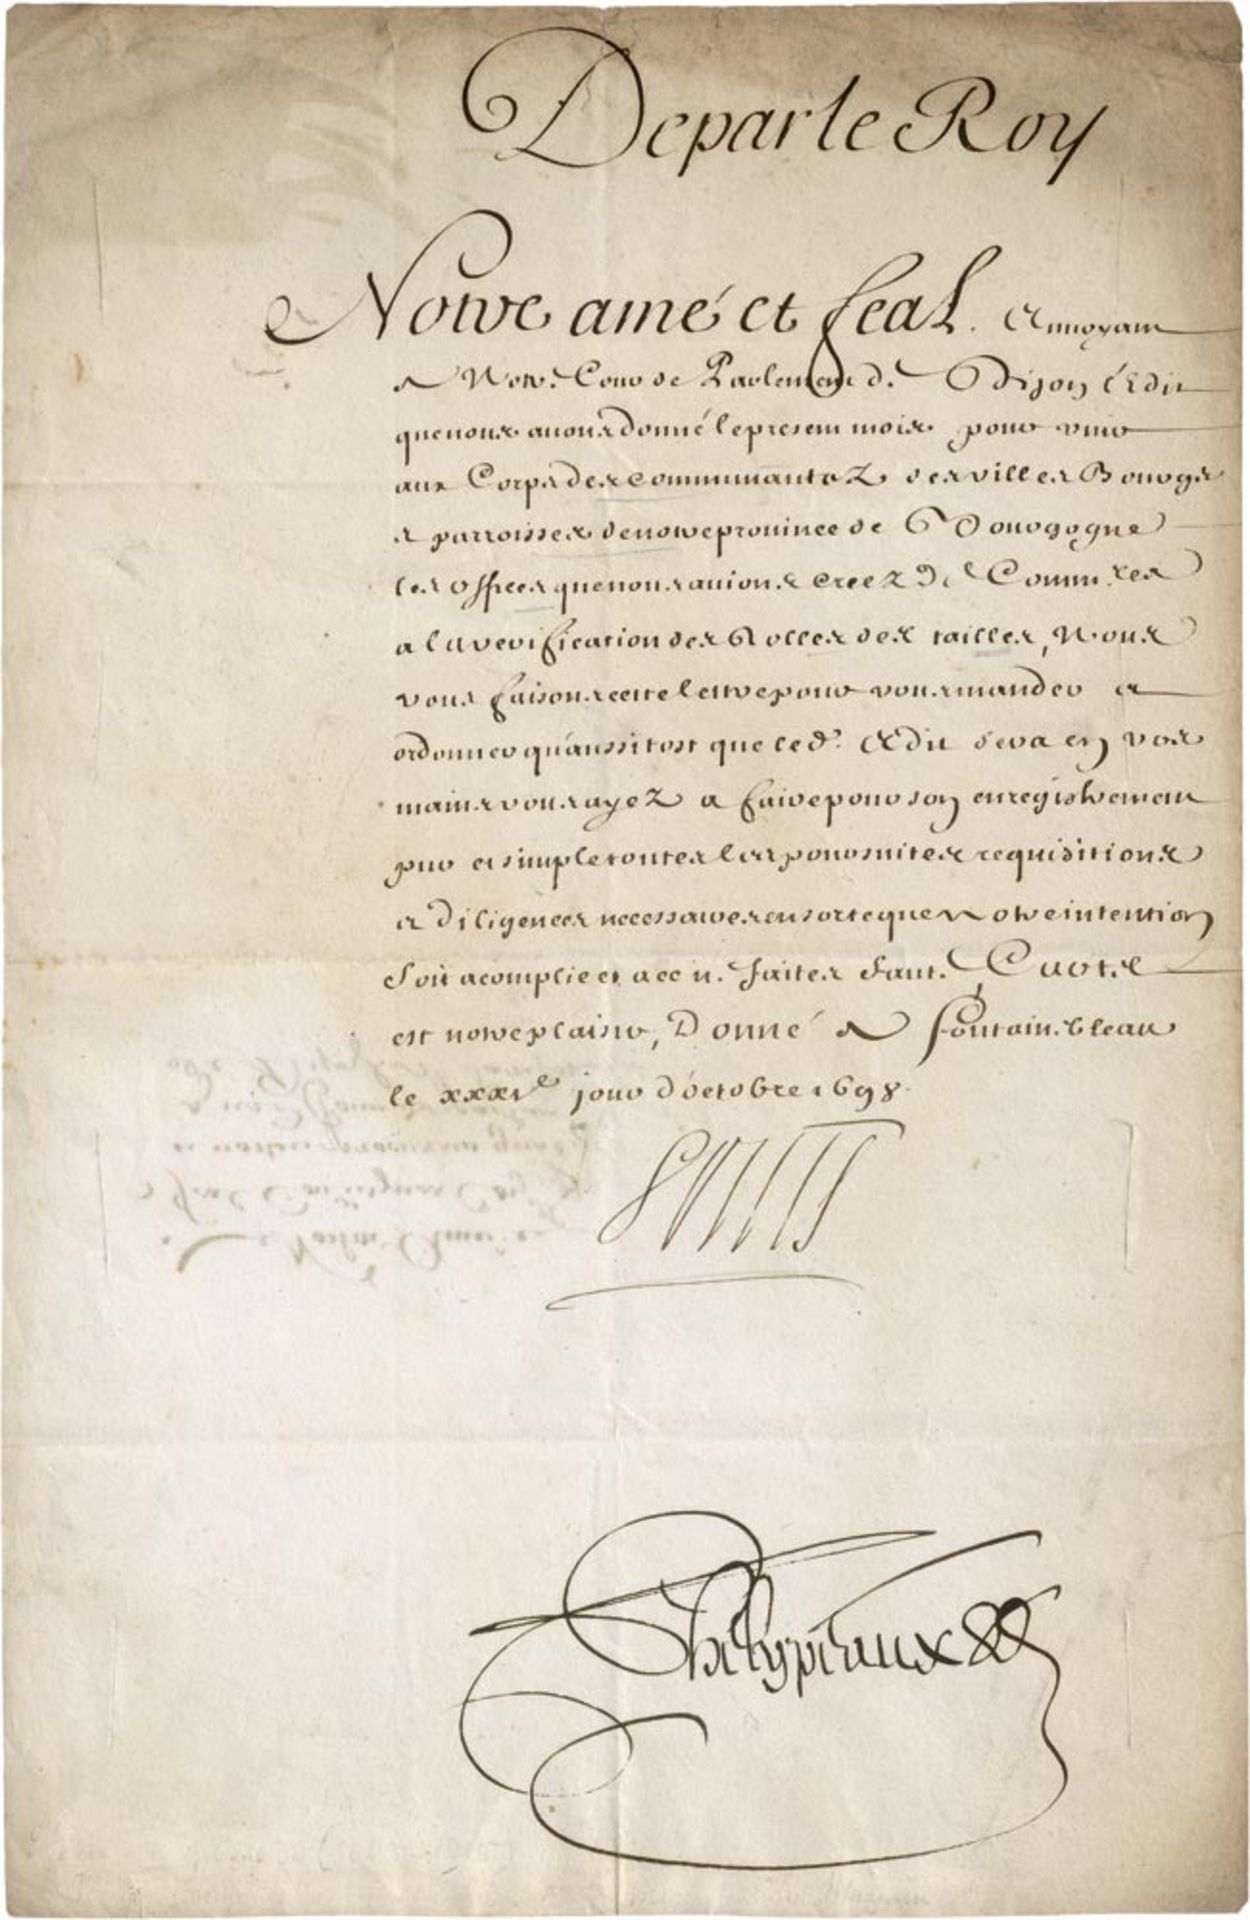 De par le Roy
Notre amé et feal. Envoyant
a Notre Cour de Parlement de Dijon l'Edit
que nous avons donné le present mois pour unir
aux Corps des communautez des villes Bourgs
et parroisses de notre province de Bourgogne
les offices que nous avions creez de Comm.res
a la verification des Rolles des tailles, Nous
vous faisons cette lettre pour vous mander et
ordonner qu'aussitost que led. Edit sera en vos
mains vous ayez a faire pour son enregistrement
pur et simple toutes les poursuites requisitions
et diligences necessaires en sorte que Notre intention
soit acomplie et a ce n. faites faute Car tel
est notre plaisir, Donné a Fontainebleau
le xxxi.e jour d'octobre 1698.
Louis
Phelypeaux